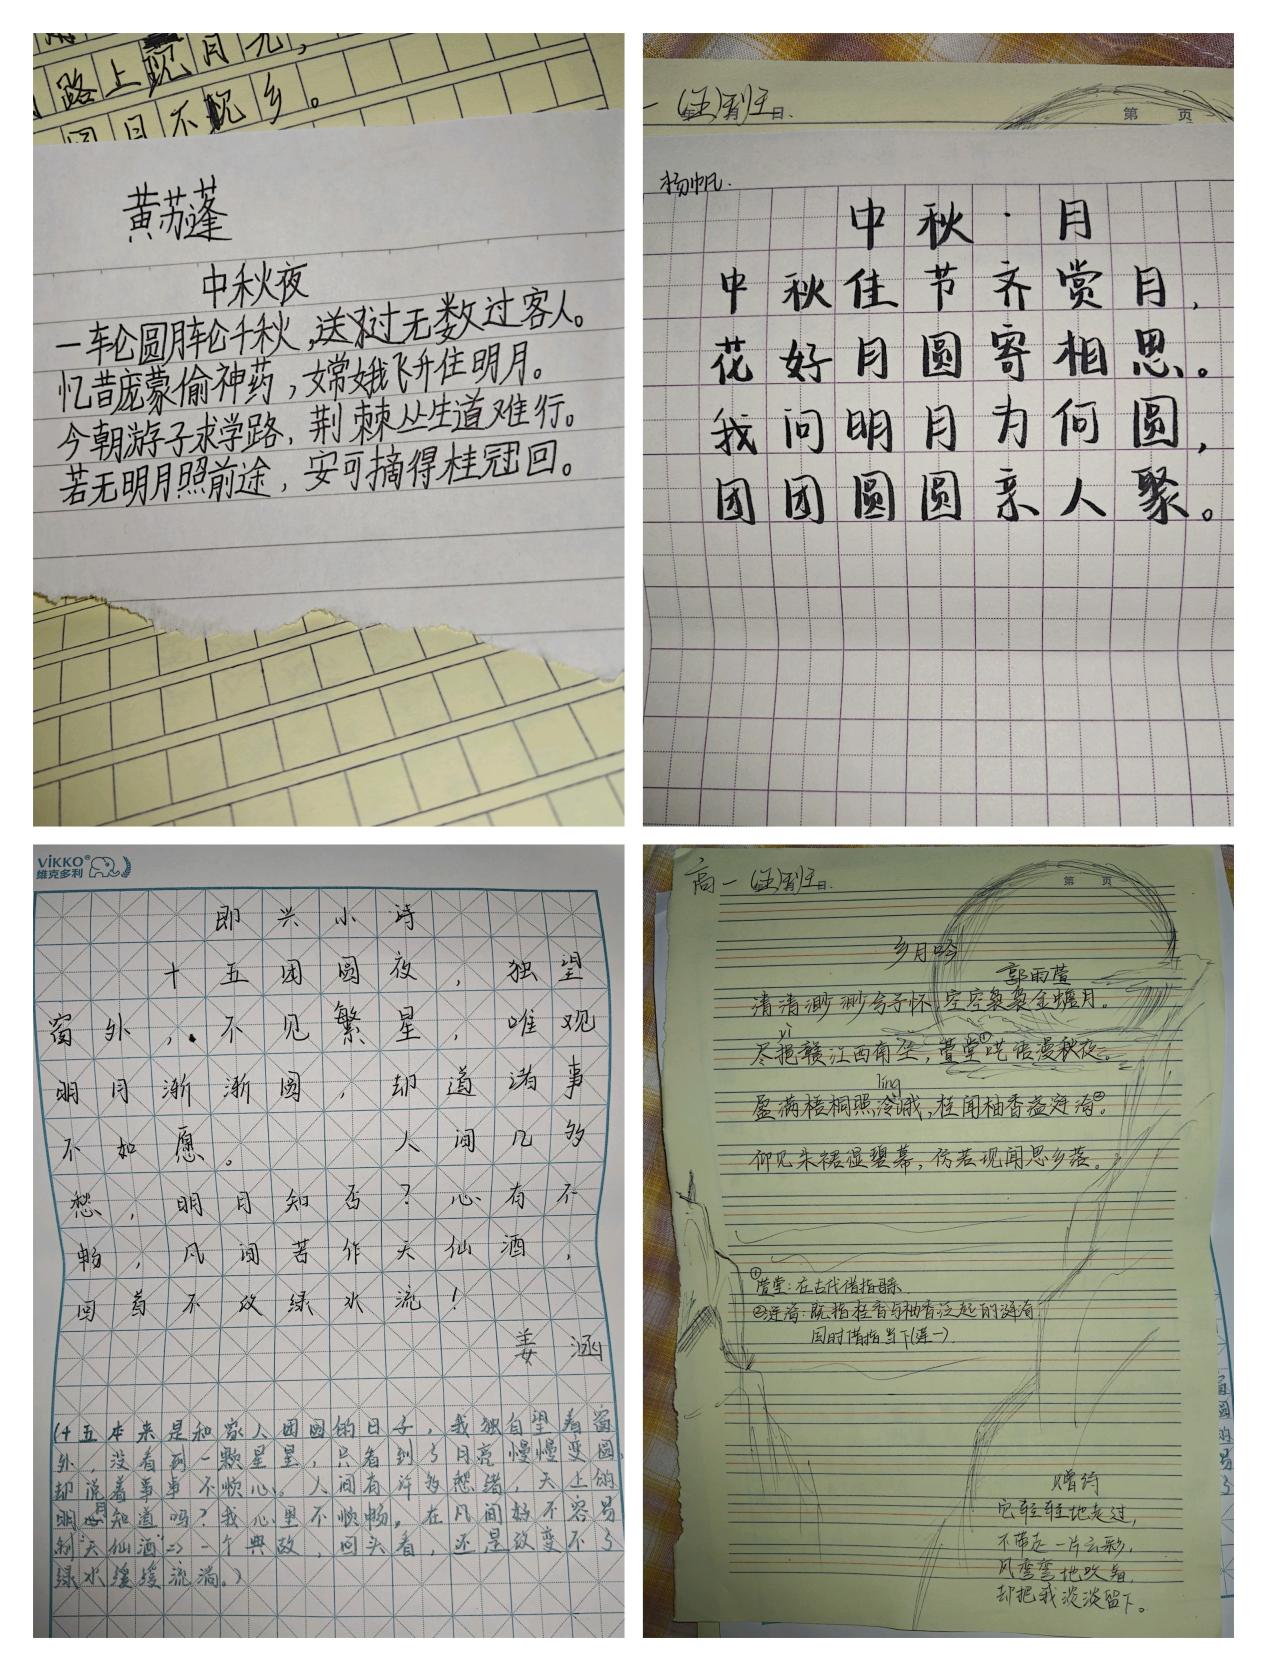 路上观月光，
月不见乡。
黄苏蓬
中秋夜
一轮圆月轮千秋，送过无数过客人。
忆昔庞蒙偷神药，嫦娥飞升住明月。
今朝游子求学路，荆棘丛生道难行。
若无明月照前途，安可摘得桂冠回。
一（五）班
年 月 日
第 页
杨帆.
中秋·月
中秋佳节齐赏月，
花好月圆寄相思。
我问明月为何圆，
团团圆圆亲人聚。
ViKKO®
维克多利
即兴小诗
十五团圆夜，独望
窗外，不见繁星，唯观
明月渐渐圆，却道诸事
不如愿。 人间几多
愁，明月知否？心有不
畅，凡间苦作天仙酒，
回首不改绿水流！
姜涵
（十五本来是和家人团圆的日子，我独自望着窗
外，没看到一颗星星，只看到了月亮慢慢变圆，
却说着事事不顺心。人间有许多愁绪，天上的
明月知道吗？我心里不顺畅，在凡间好不容易
制“天仙酒”=>一个典故，回头看，还是改变不了
绿水缓缓流淌。）
高一（五）班
年 月 日
第 页
乡月吟
郭雨萱
清清渺渺兮予怀，空空袅袅金蟾月。
yì
尽挹赣江西南尘，萱堂①呓语漫秋夜。
líng
盈满梧桐照泠涐，桂闻柚香盗涟漪②。
仰见朱裙湿碧幕，仿若现闻思乡落。
①萱堂：在古代借指母亲.
②涟漪：既指桂香与柚香泛起的涟漪
同时借指当下(涟一).
赠诗
它轻轻地走过，
不带走一片云彩，
风弯弯地吹着，
却把我淡淡留下。